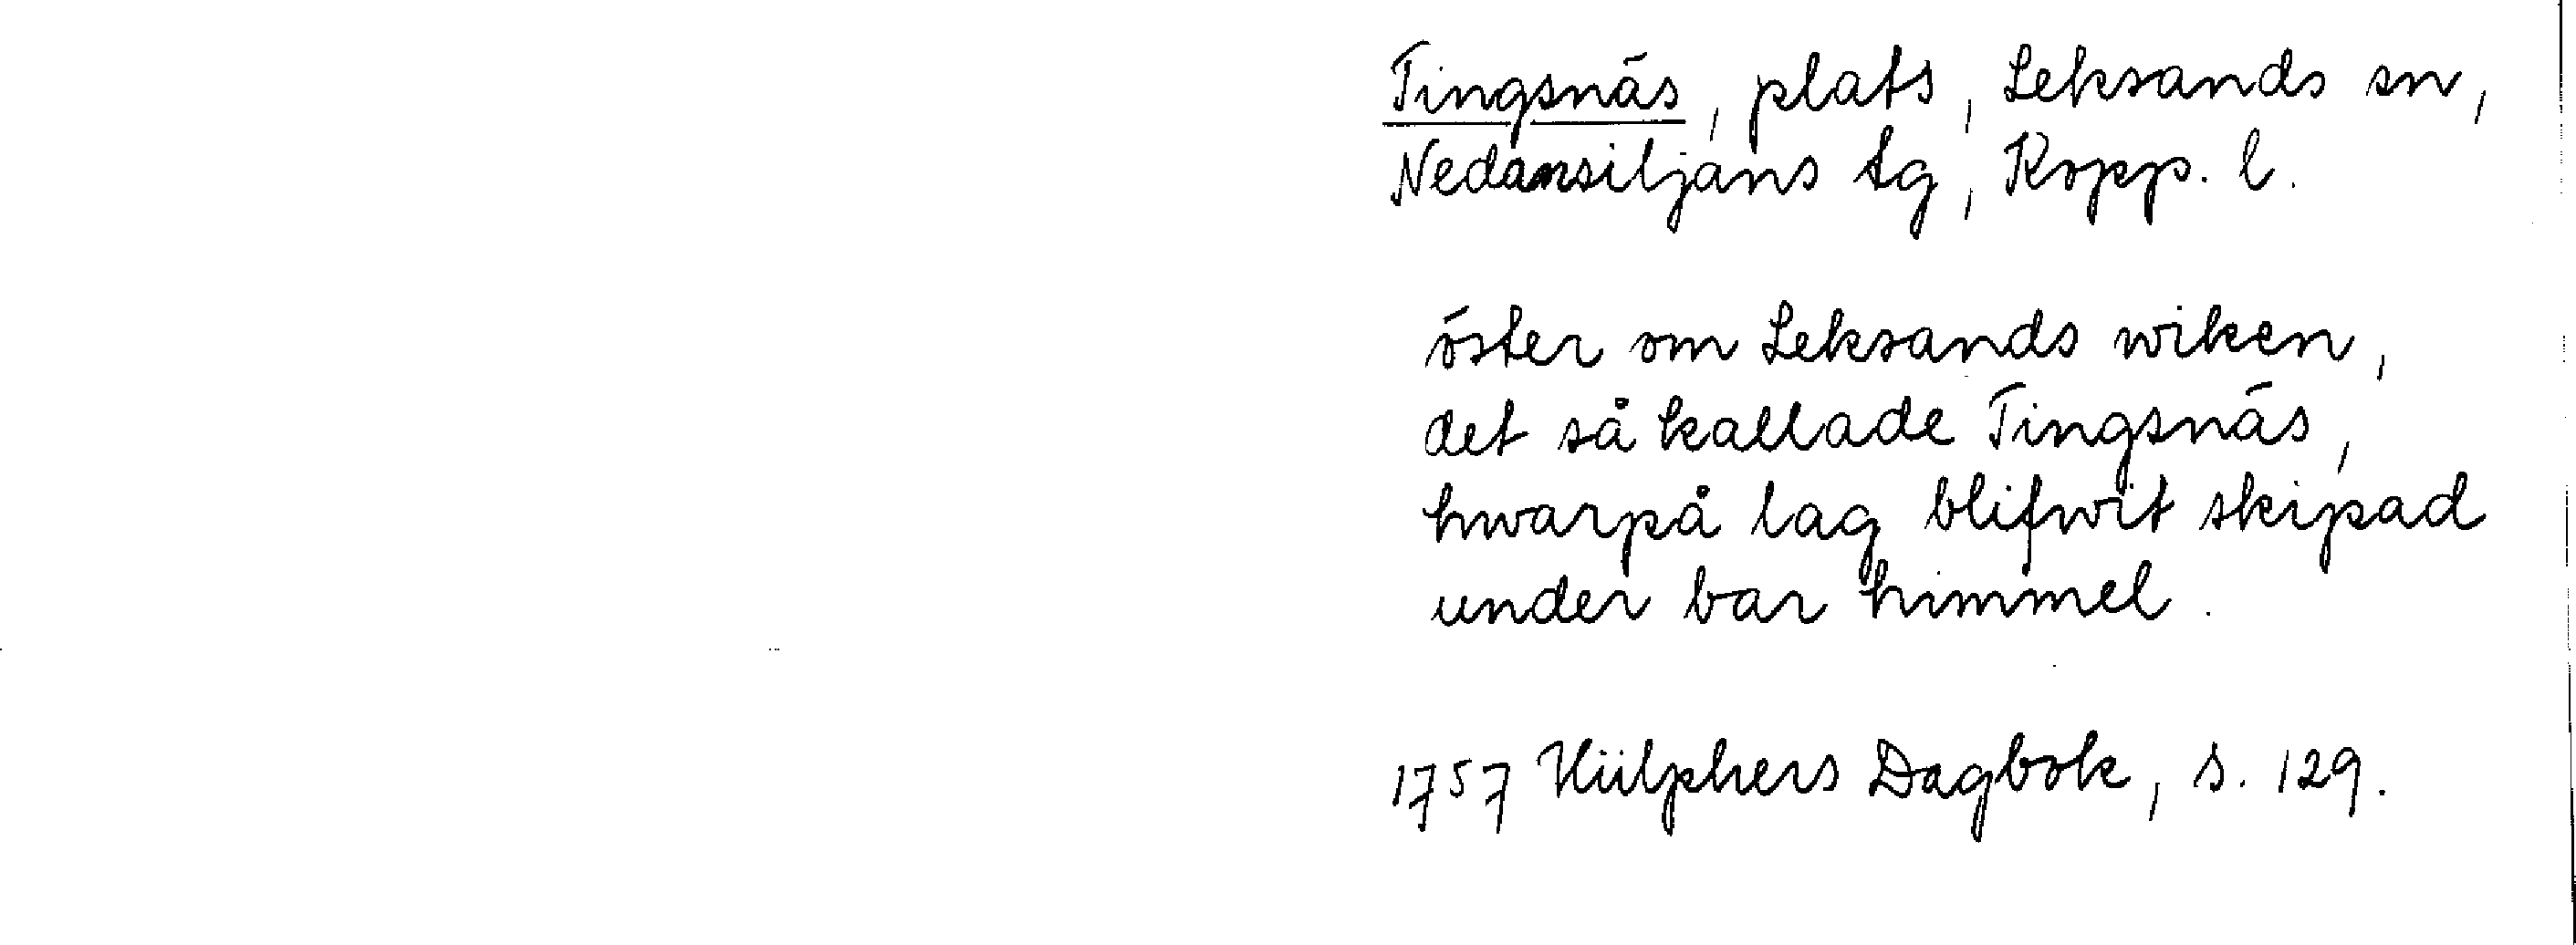 Tingsnäs, plats, Leksands sn,
Nedansiljans tg, Kopp. l.
öster om Leksands wiken,
det så kallade Tingsnäs,
hwarpå lag blifwit skipad
under bar himmel.
1757 Hülphers Dagbok, s. 129.